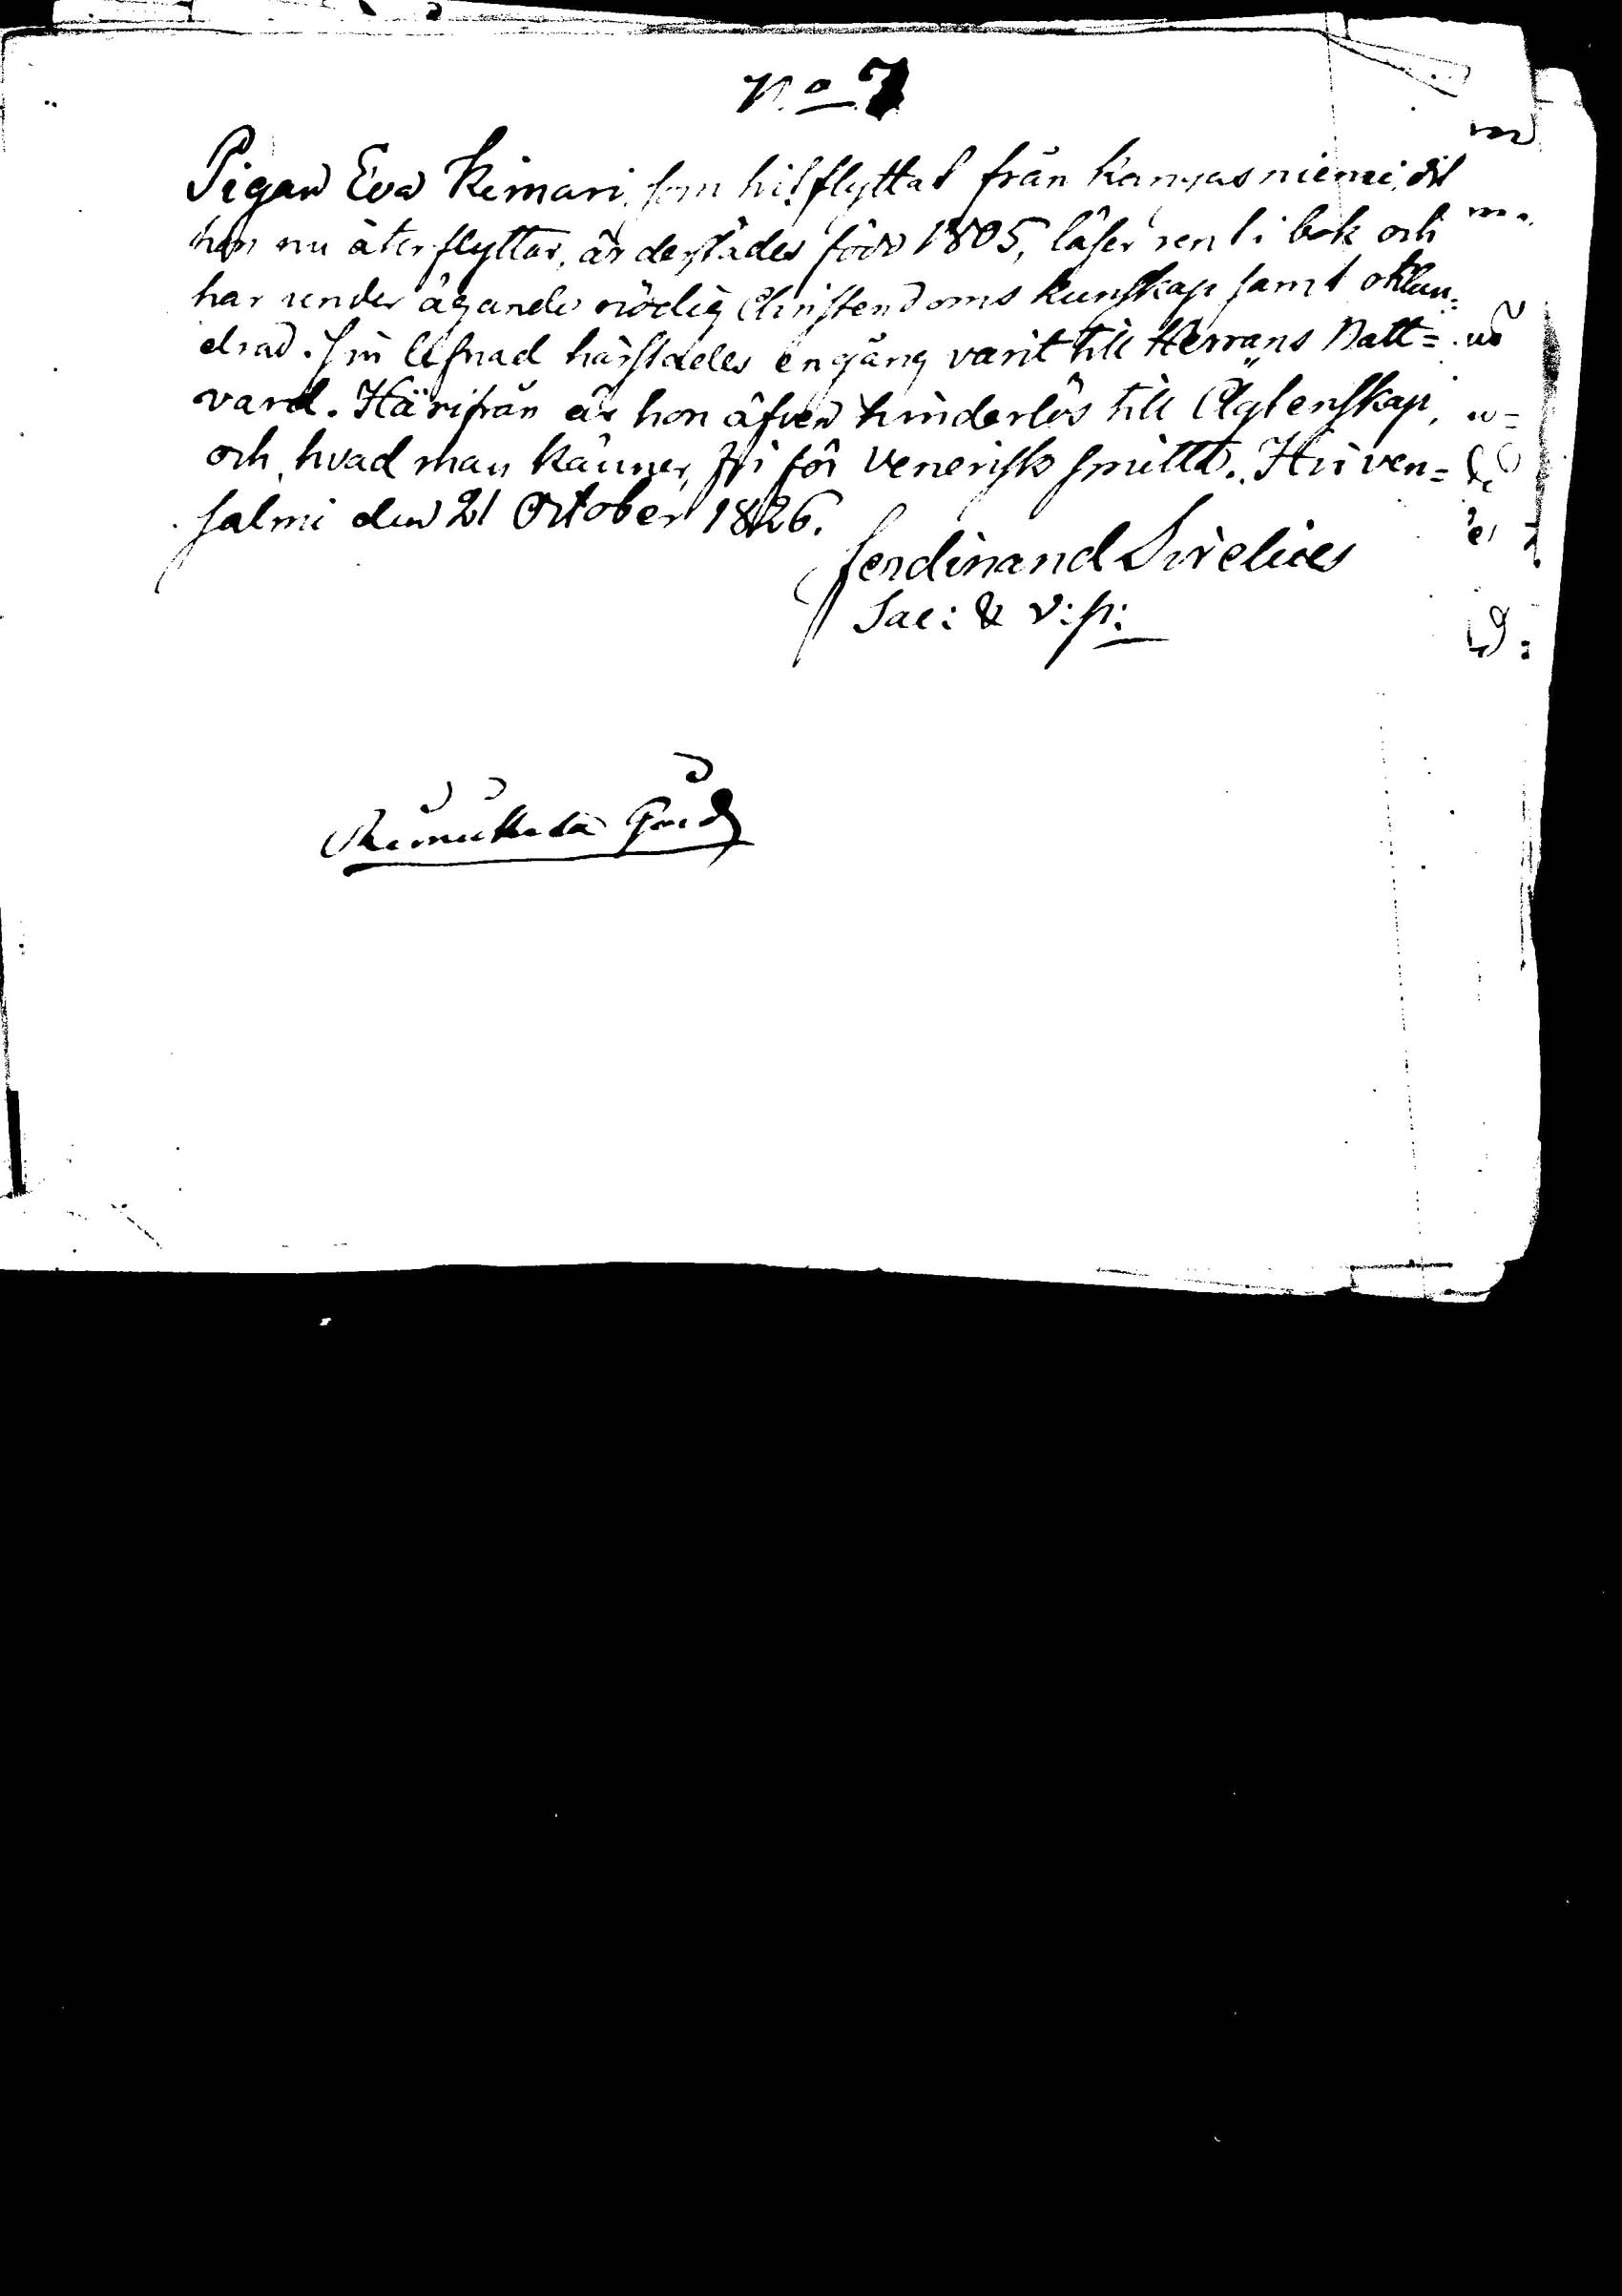 No 7
Pigan Eva Kimari, som hit flyttat från Kangasniemi, dit
hon nu återflyttar, är derstädes född 1805, läser rent i bok och
har under ägande nödig Christendoms kunskap samt oklan=
drad. sin lefnad härstädes engång varit till Herrans Natt=
vard. Härifrån är hon äfven hinderlös till Ägtenskap,
och, hvad man känner, fri för Venerisk smitta. Hirven=
salmi den 21 October 1826.
Ferdinand Sirelius
Sac: & v: p: